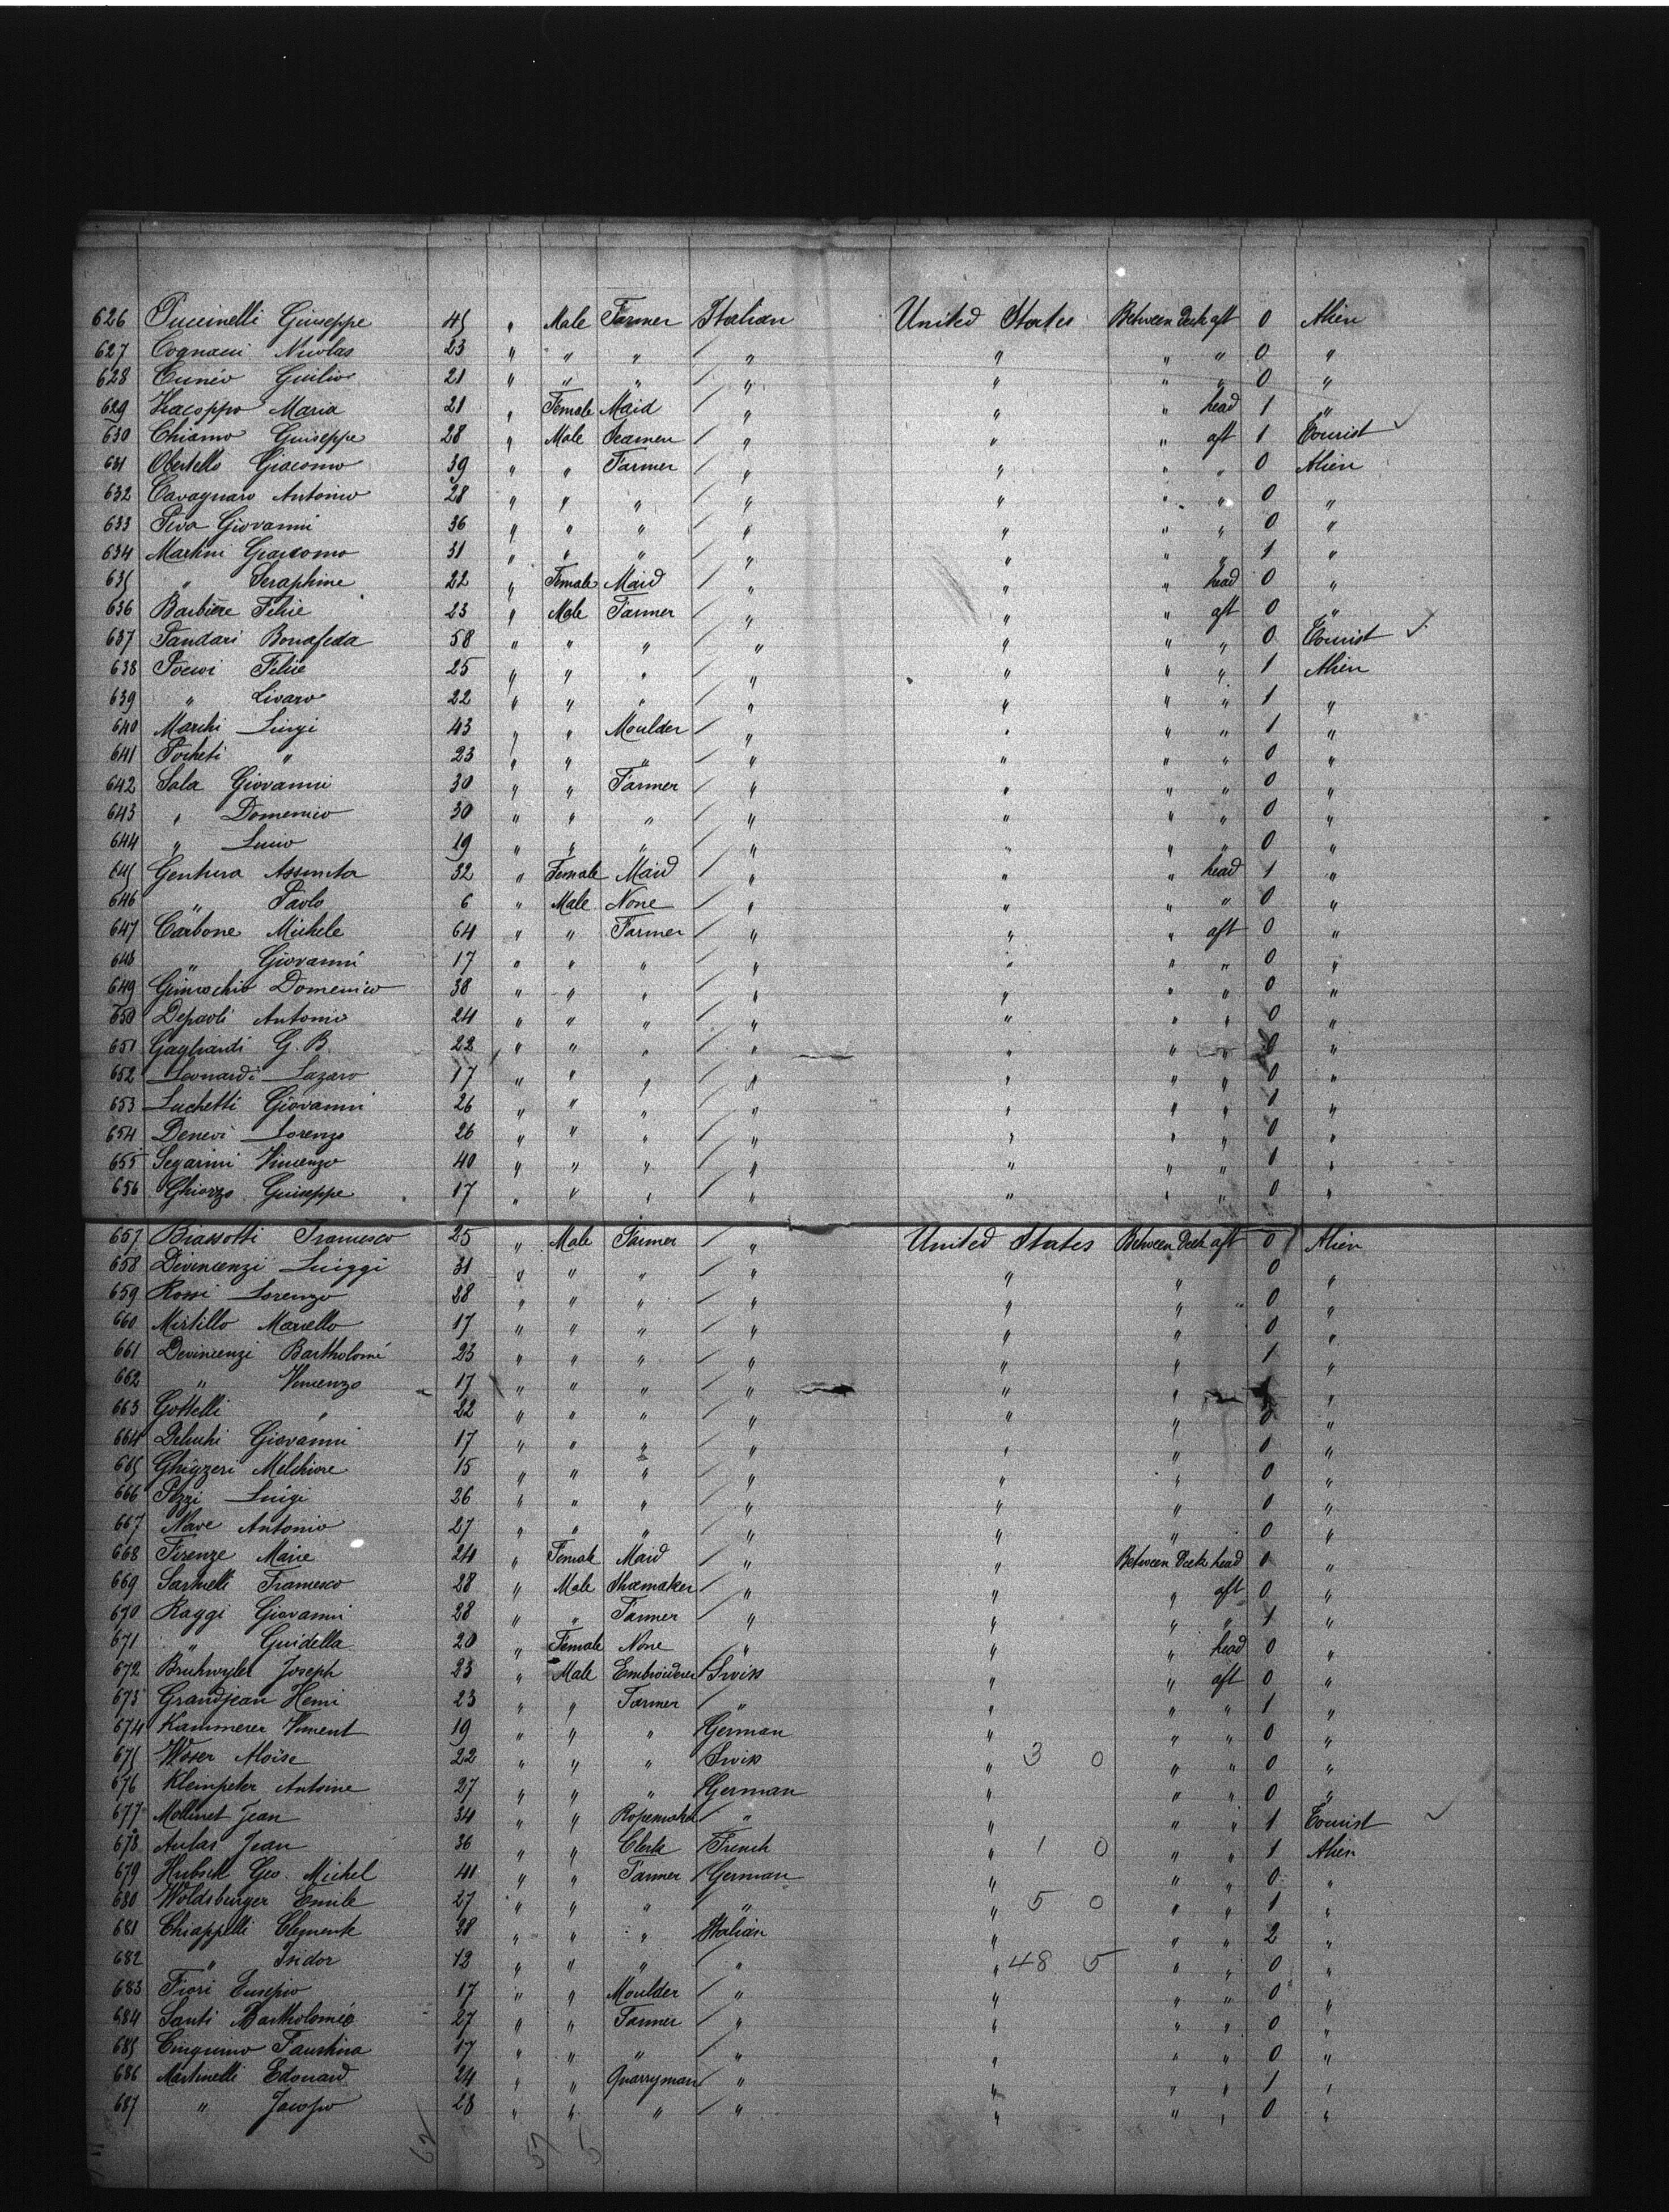 626 Puccinelli Giuseppe 45 " Male Farmer Italian United States Between deck aft 0 Alien
627 Cognacci Nicolas 23 " " " " " " " 0 "
628 Cuneo Guilio 21 " " " " " " " 0 "
629 Iacoppo Maria 21 " Female Maid " " " head 1 "
630 Chiamo Guiseppe 28 " Male Seamen " " " aft 1 Tourist
631 Obertello Giacomo 39 " " Farmer " " " " 0 Alien
632 Cavagnaro Antonio 28 " " " " " " " 0 "
633 Piva Giovanni 36 " " " " " " " 0 "
634 Martini Giacomo 31 " " " " " " " 1 "
635 " Seraphine 22 " Female Maid " " " head 0 "
636 Barbiere Felice 23 " Male Farmer " " " aft 0 "
637 Fandari Bonafeda 58 " " " " " " " 0 Tourist
638 Felice 25 " " " " " " " 1 Alien
639 " Livaro 22 " " " " " " " 1 "
640 Marchi Luigi 43 " " Moulder " " " " 1 "
641 Pocheti " 23 " " " " " " " 0 "
642 Sala Giovanni 30 " " Farmer " " " " 0 "
643 " Domenico 30 " " " " " " " 0 "
644 " Lucio 19 " " " " " " " 0 "
645 Gentura Assunta 32 " Female Maid " " " head 1 "
646 " Paolo 6 " Male None " " " " 0 "
647 Carbone Michele 64 " " Farmer " " " aft 0 "
648 " Giovanni 17 " " " " " " " 0 "
649 Ginnochio Domenico 38 " " " " " " " 0 "
650 Depaoli Antonio 24 " " " " " " " 0 "
651 Gagliardi G. B. 22 " " " " " " " 0 "
652 Leonardi Lazaro 17 " " " " " " " 0 "
653 Luchetti Giovanni 26 " " " " " " " 1 "
654 Denevi Lorenzo 26 " " " " " " " 0 "
655 Segarini Vincenzo 40 " " " " " " " 1 "
656 Ghiorzo Guiseppe 17 " " " " " " " 0 "
657 Biassotti Francesco 25 " Male Farmer " United States Between deck aft 0 Alien
658 Divincenzi Luiggi 31 " " " " " " 0 "
659 Rossi Lorenzo 28 " " " " " " " 0 "
660 Mirtillo Marcello 17 " " " " " " 0 "
661 Devincenzi Bartholomé 23 " " " " " " 1 "
662 " Vincenzo 17 " " " " " " "
663 Gottelli " 22 " " " " " " 0 "
664 Deluchi Giovanni 17 " " " " " " 1 "
665 Ghigzeri Melchiore 15 " " " " " " 0 "
666 Pezzi Luigi 26 " " " " " " 0 "
667 Nave Antonio 27 " " " " " " 0 "
668 Firenze Marie 24 " Female Maid " " Between Deck head 0 "
669 Sartinelli Francesco 28 " Male Shoemaker " " " aft 0 "
670 Raggi Giovanni 28 " " Farmer " " " " 1 "
671 " Guidella 20 " Female None " " " head 0 "
672 Bruhwyler Joseph 23 " Male Embroiderer Swiss " " aft 0 "
673 Grandjean Henri 23 " " Farmer " " " " 1 "
674 Kammerer Vincent 19 " " " German " " " 0 "
675 Woser Aloïse 22 " " " Swiss " 3 0 " " 0 "
676 Kleinpeter Antoine 27 " " " German " " " 0 "
677 Mollinet Jean 34 " " Ropemaker " " " " 1 Tourist
678 Aulas Jean 36 " " Clerk French " 1 0 " " 1 Alien
679 Hubsch Geo. Michel 41 " " Farmer German " " " 0 "
680 Woldsburger Emile 27 " " " " " 5 0 " " 1 "
681 Chiappelli Clemente 28 " " " Italian " " " 2 "
682 " Isidor 12 " " " " " 48 5 " " 0 "
683 Fiori Eusepio 17 " " Moulder " " " " 0 "
684 Santi Bartholoméo 27 " " Farmer " " " " 0 "
685 Cinquino Faustina 17 " " " " " " " 0 "
686 Martinelli Edouard 24 " " Quarryman " " " " 1 "
687 " Jacopo 28 " " " " " " " 0 "
62 57 5